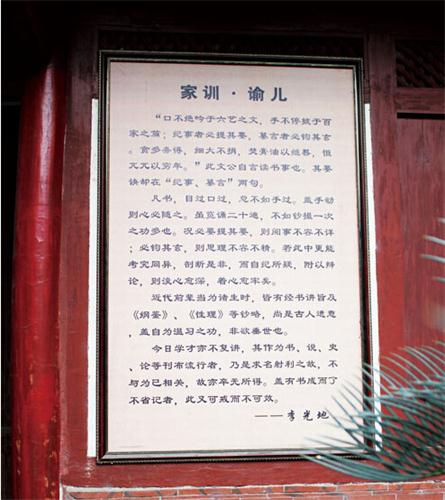 家训·谕儿
“口不绝吟于六艺之文，手不停披于百
家之篇；纪事者必提其要，纂言者必钩其玄。
贪多务得，细大不捐，焚膏油以继晷，恒
兀兀以穷年。”此文公自言读书事也。其要
诀却在“纪事、纂言”两句。
凡书，目过口过，总不如手过。盖手动
则心必随之。虽览诵二十遍，不如钞撮一次
之功多也。况必要提其要，则阅事不容不详；
必钩其玄，则思理不容不精。若此中更能
考究同异，剖断是非，而自纪所疑，附以辩
论，则浚心愈深，着心愈牢矣。
近代前辈当为诸生时，皆有经书讲旨及
《纲鉴》、《性理》等钞略，尚是古人遗意，
盖自为温习之功，非欲垂世也。
今日学才亦不复讲，其作为书、说、史
、论等刊布流行者，乃是求名射利之故，不
与为已相关，故亦卒无所得。盖有书成而了
不省记者，此又可戒而不可效。
——李光地